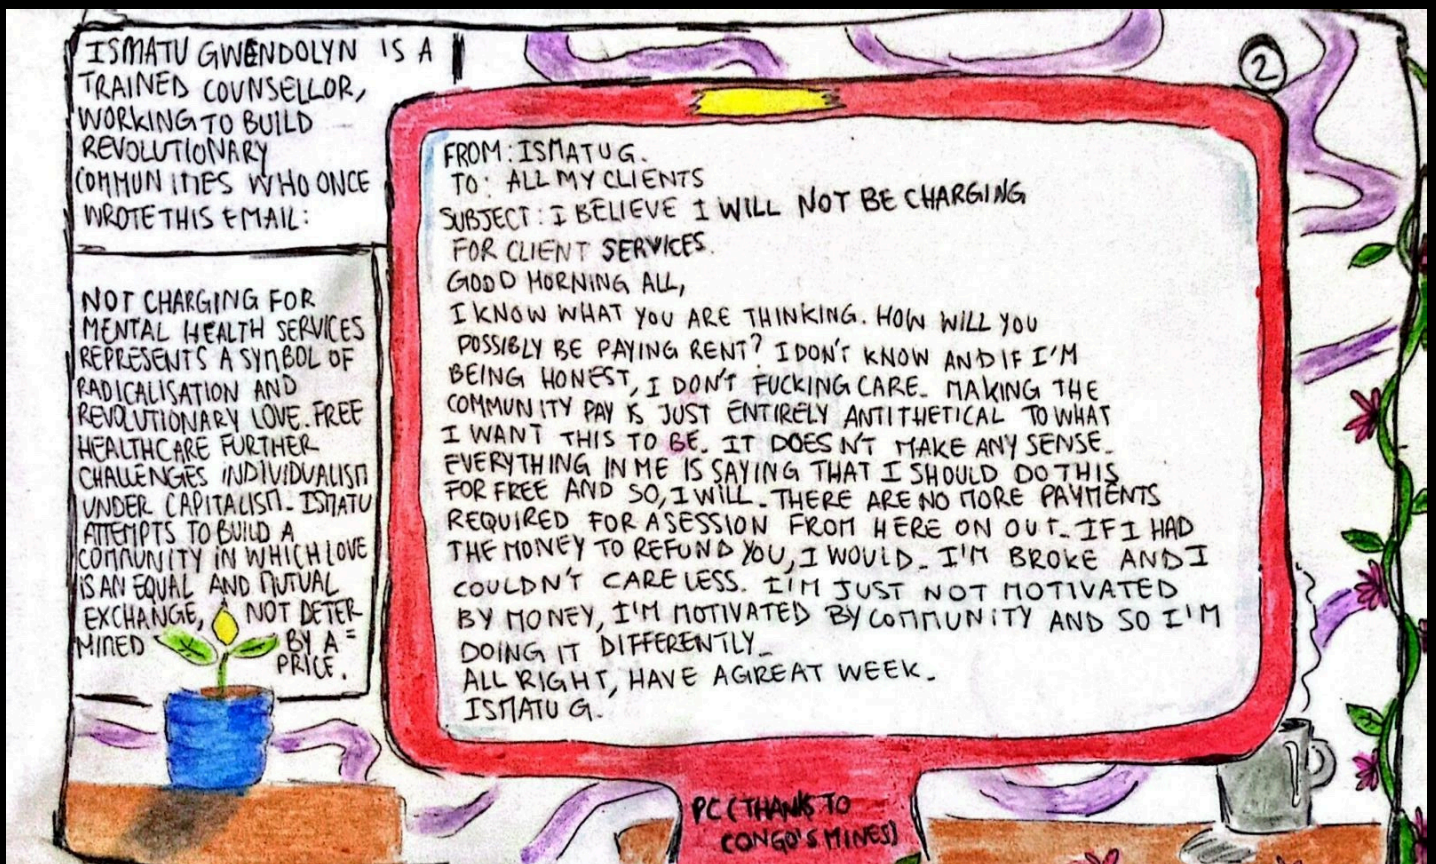 ISMATU GWENDOLYN IS A
TRAINED COUNSELLOR,
WORKING TO BUILD
REVOLUTIONARY
COMMUNITIES WHO ONCE
WROTE THIS EMAIL:
NOT CHARGING FOR
MENTAL HEALTH SERVICES
REPRESENTS A SYMBOL OF
RADICALISATION AND
REVOLUTIONARY LOVE. FREE
HEALTHCARE FURTHER
CHALLENGES INDIVIDUALISM
UNDER CAPITALISM. ISMATU
ATTEMPTS TO BUILD A
COMMUNITY IN WHICH LOVE
IS AN EQUAL AND MUTUAL
EXCHANGE, NOT DETER
MINED BY A =
PRICE.
2
FROM: ISMATU G.
TO: ALL MY CLIENTS
SUBJECT: I BELIEVE I WILL NOT BE CHARGING
FOR CLIENT SERVICES.
GOOD MORNING ALL,
I KNOW WHAT YOU ARE THINKING. HOW WILL YOU
POSSIBLY BE PAYING RENT? I DON'T KNOW AND IF I'M
BEING HONEST, I DON'T FUCKING CARE. MAKING THE
COMMUNITY PAY IS JUST ENTIRELY ANTITHETICAL TO WHAT
I WANT THIS TO BE. IT DOESN'T MAKE ANY SENSE.
EVERYTHING IN ME IS SAYING THAT I SHOULD DO THIS
FOR FREE AND SO, I WILL. THERE ARE NO MORE PAYMENTS
REQUIRED FOR A SESSION FROM HERE ON OUT. IF I HAD
THE MONEY TO REFUND YOU, I WOULD. I'M BROKE AND I
COULDN'T CARE LESS. I'M JUST NOT MOTIVATED
BY MONEY, I'M MOTIVATED BY COMMUNITY AND SO I'M
DOING IT DIFFERENTLY.
ALL RIGHT, HAVE A GREAT WEEK.
ISMATU G.
PC (THANKS TO
CONGO'S MINES)